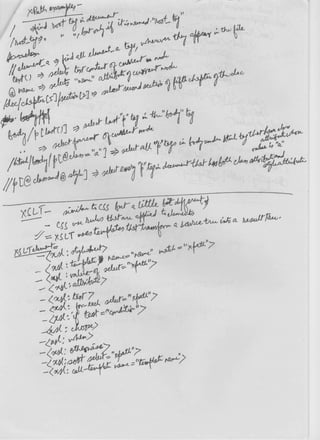 XPath examples:-
/ find root tag in document
/root_tag → " ", but only if it is named "root_tag"
//element_a → find all element_a tags, wherever they appear in the file
text() → selects text content of current node
@ name → selects "name" attribute of current node
/doc/chapter[5]/section[2] → select second section of fifth chapter of the doc
body/p[last()] → select last "p" tag in the "body" tag
.. → select parent of current node
/html/body/p[@class="a"] → select all "p" tags in body under html tag that have class attribute whose value is "a"
//p[@class and @style] → select every "p" tag in document that has both class attribute and style attribute.
XSLT - similar to CSS but a little bit different
- CSS use rules that are applied to elements
- XSLT uses templates that transform a source tree into a result tree.
XSLT elements -
- <xsl: stylesheet>
- <xsl: template name="name" match="xpath">
- <xsl: value-of select="xpath">
- <xsl: attribute>
- <xsl: text>
- <xsl: for-each select="xpath">
- <xsl: if test="condition">
- <xsl: choose>
- <xsl: when>
- <xsl: otherwise>
- <xsl: sort select="xpath">
- <xsl: call-template name="template name">